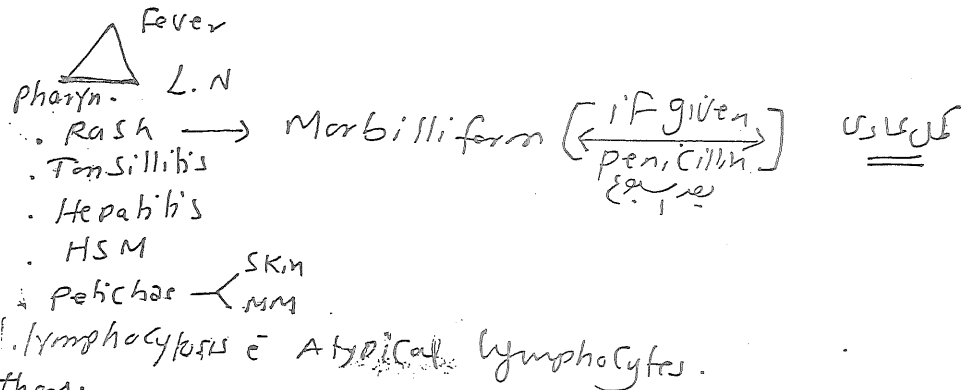 Fever
Pharyn. L.N
. Rash → Morbilliform [if given penicillin]
بعد اسبوع
. Tonsillitis
. Hepatitis
. HSM
. Petichae Skin
MM
. lymphocytosis c̄ Atypical lymphocytes.